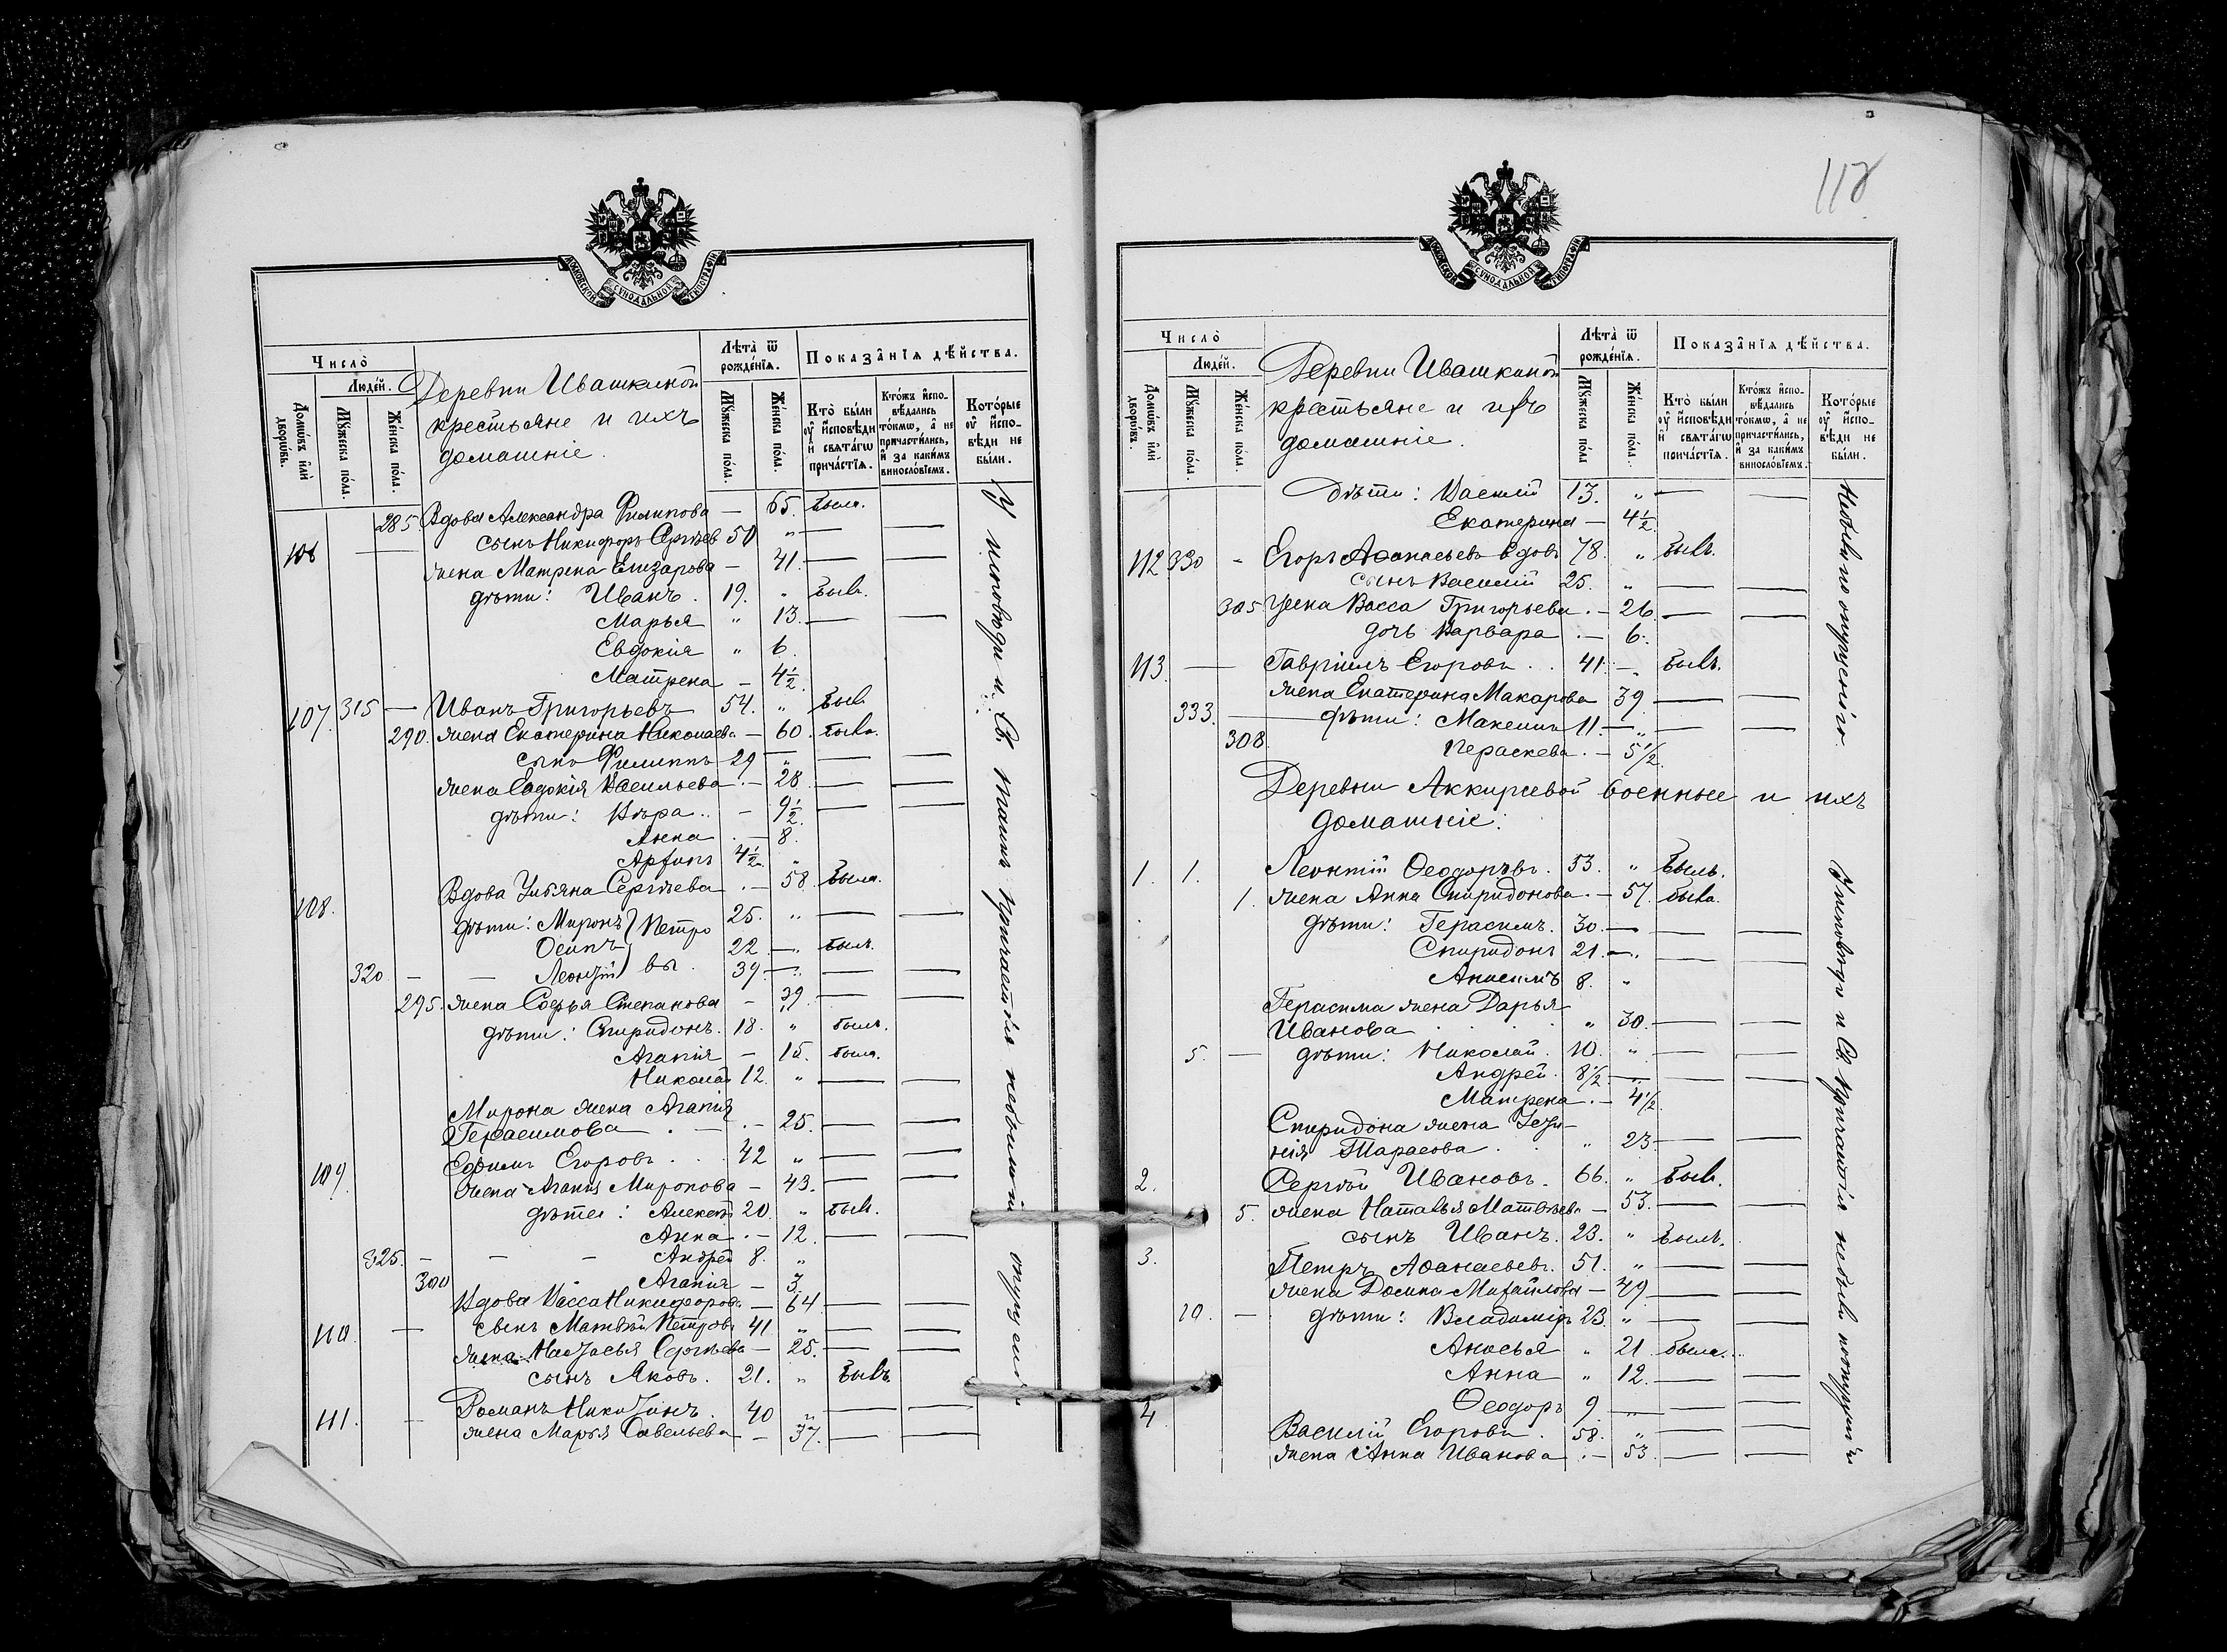 МОСКОВСКОЙ СѴНОДАЛЬНОЙ ТИПОГРАФІИ
Число̀
Люде́й.
Домѡ́въ и҆лѝ дворѡ́въ.
Мꙋ́жеска по́ла.
Же́нска по́ла.
Деревни Ивашкиной
крестьяне и ихъ
домашніе.
Лѣта̀ ѿ рожде́нїѧ.
Мꙋ́жеска по́ла.
Же́нска по́ла.
Показа̑нїѧ дѣ́йства.
Кто̀ бы́ли ᲂу҆ и҆сповѣ́ди и҆ свѧта́гѡ прича́стїѧ.
Кто́жъ и҆сповѣ́дались то́кмѡ, а҆ не причасти́лись, и҆ за каки́мъ винослѡ́вїемъ.
Кото́рые ᲂу҆ и҆спо-вѣди не бы́ли.
285. Вдова Александра Филипова — 65. была.
106 сынъ Никифоръ Сергѣев 50 „ —
жена Матрена Елизарова — 41. — —
дѣти: Иванъ. 19. „ былъ.
Марья „ 13. — —
Евдокія „ 6.
Матрена — 4½.
107. 315 — Иванъ Григорьевъ 54. „ былъ
290. жена Екатерина Николаева — 60. была.
сынъ Филиппъ 29 „ — —
жена Евдокія Васильева. — 28 — —
дѣти: Вѣра.. — 9½. — —
Анна. — 8.
4½. „
108. Вдова Ульяна Сергѣева. — 58. была.
дѣти: Миронъ } Петро 25. „ — —
Осипъ } 22. — „ былъ.
320 — — Леонтій } вы. 39 — „ — —
295. жена Софья Степанова — 39. — —
дѣти: Спиридонъ. 18. „ былъ.
Агапія — 15. была.
Николай 12. „ — —
Мирона жена Агапія
Герасимова. — . — 25. — —
109. Ефимъ Егоровъ. . . 42 „ — —
жена Агапія Миронова — 43. — —
дѣти: Алексѣй 20. „ былъ.
Анна. — 12. — —
325. — — — Андрей 8. „
300 Агапія — 3.
Вдова Васса Никифорова — 64 — —
110. — сынъ Матвѣй Петровъ 41. „ — —
жена Настасья Сергѣева — 25. — —
сынъ Яковъ. 21. „ былъ.
111. — Романъ Никитинъ. 40 „ — —
жена Марья Савельева — 37. — —
У исповѣди и Св. Таинъ причастія небыли по опущенію
118
МОСКОВСКОЙ СѴНОДАЛЬНОЙ ТИПОГРАФІИ
Число̀
Люде́й.
Домѡ́въ и҆лѝ дворѡ́въ.
Мꙋ́жеска по́ла.
Же́нска по́ла.
Деревни Ивашкиной
крестьяне и ихъ
домашніе.
Лѣта̀ ѿ рожде́нїѧ.
Мꙋ́жеска по́ла
Же́нска по́ла.
Показа̑нїѧ дѣ́йства.
Кто̀ бы́ли ᲂу҆ и҆сповѣ́ди и҆ свѧта́гѡ прича́стїѧ.
Кто́жъ и҆сповѣ́дались то́кмѡ, а҆ не причасти́лись, и҆ за каки́мъ винослѡ́вїемъ.
Кото́рые ᲂу҆ и҆спо-вѣди не бы́ли.
Дѣти: Василій 13. „ — —
Екатерина — 4½.
112 330 - Егоръ Аѳанасьевъ вдовъ 78. „ былъ.
сынъ Василій 25. „ — —
305. Жена Васса Григорьева. — 26. — —
дочь Варвара. — 6.
113. — Гавріилъ Егоровъ. . 41. — „ былъ.
жена Екатерина Макарова 39. — —
333. — дѣти: Максимъ 11. — „ — —
308. Параскева. — 5½.
Деревни Аккиреевой военные и ихъ
домашніе:
1. 1. Леонтій Ѳеодоровъ. 53. „ былъ.
1. жена Анна Спиридонова. — 57. была.
дѣти: Герасимъ. 30. — — —
Спиридонъ 21. — „ — —
Анисимъ 8. „
Герасима жена Дарья
Иванова . . . . . „ 30. — —
5. — дѣти: Николай. 10. „ — —
Андрей. 8½. — „ — —
Матрена. — 4½.
Спиридона жена
Тарасова. . „ 23. — —
2. Сергѣй Ивановъ. 66. „ былъ.
5. жена Наталья Матвѣева — 53. — —
сынъ Иванъ. 23. „ былъ.
3. Петръ Аѳанасьевъ. 51. „ — —
жена Домна Михайлова — 49. — —
10. — дѣти: Владиміръ 23. „ — —
Анисья „ 21. была.
Анна „ 12. — —
Ѳеодоръ 9. „ — —
4 Василій Егоровъ. 58. „ — —
жена Анна Иванова. — 53. — —
Небыли по опущенію.
У исповѣди и Св. Причастія небыли